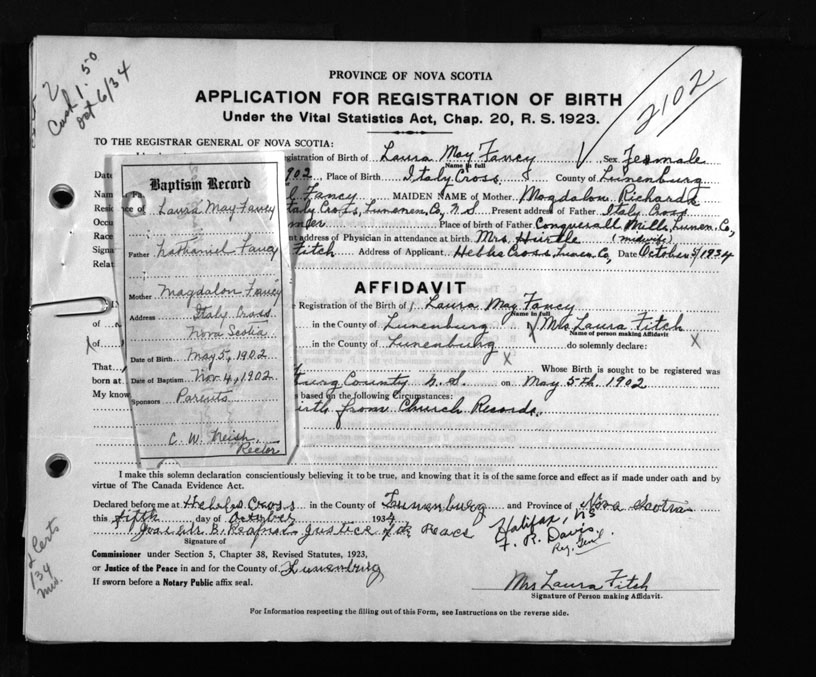 2
Cash 1.50
Oct 6/34
2102
PROVINCE OF NOVA SCOTIA
APPLICATION FOR REGISTRATION OF BIRTH
Under the Vital Statistics Act, Chap. 20, R. S. 1923.
TO THE REGISTRAR GENERAL OF NOVA SCOTIA:
egistration of Birth of Laura May Fancy Sex Female
Name in full
Date 1902 Place of Birth Italy Cross County of Lunenburg
Name l Fancy MAIDEN NAME of Mother Magdalon Richards
Residence of Italy Cross, Lunenen, Co, N.S Present address of Father Italy Cross
Occu Place of Birth of Father Conquerall Mills, Lunen, Co,
Race address of Physician in attendance at birth Mrs. Hirtle (midwife)
Signa Fitch Address of Applicant Hebbs Cross, Lunen, Co, Date October 5/1934
Relat
Baptism Record
of Laura May Fancy
Father Nathaniel Fancy
Mother Magdalon Fancy
Address Italy Cross
Nova Scotia
Date of Birth May 5, 1902
Date of Baptism Nov. 4, 1902
Sponsors Parents
C. W. Neish
Rector
AFFIDAVIT
e Registration of the Birth of Laura May Fancy
Name in full
of in the County of Lunenburg Mrs Laura Fitch
Name of person making Affidavit
of in the County of Lunenburg do solemnly declare:
That Whose Birth is sought to be registered was
born at burg County N.S. on May 5th 1902
My know s based on the following Circumstances:
Birth from Church Records.
I make this solemn declaration conscientiously believing it to be true, and knowing that it is of the same force and effect as if made under oath and by
virtue of The Canada Evidence Act.
Declared before me at Hebbs Cross in the County of Lunenburg and Province of Nova Scotia
this fifth day of October 1934
Justice of the Peace
Signature of
Halifax, NS
F. R. Davis.
Reg. Genl
Commissioner under Section 5, Chapter 38, Revised Statutes, 1923,
or Justice of the Peace in and for the County of Lunenburg
If sworn before a Notary Public affix seal.
Mrs Laura Fitch
Signature of Person making Affidavit.
For Information respecting the filling out of this Form, see Instructions on the reverse side.
2 Certs